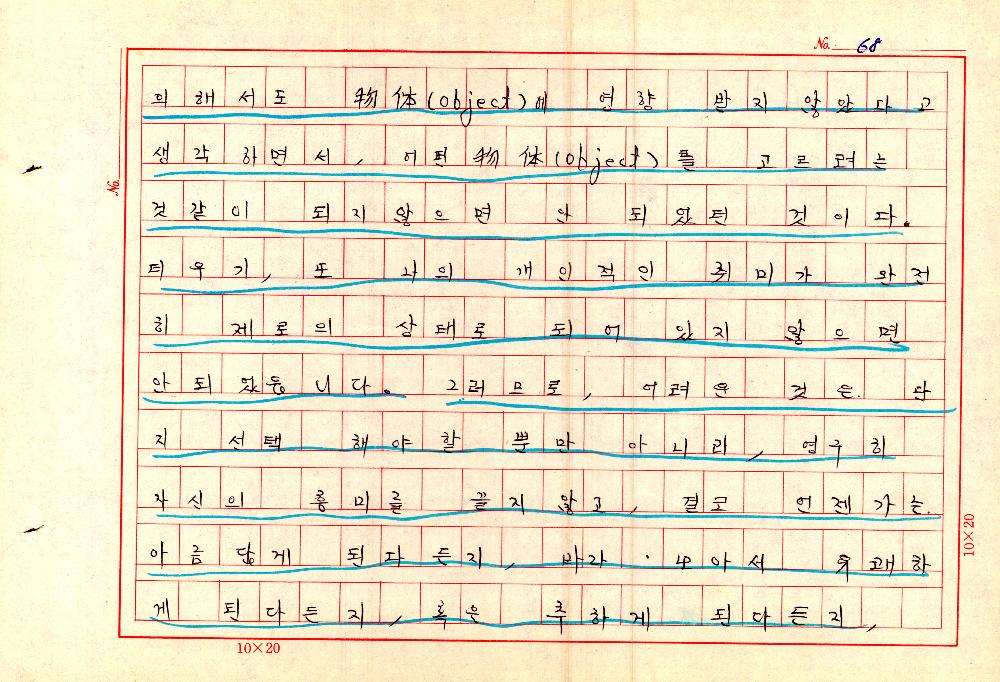 No. 68
의해서도 物体(object)에 영향 받지 않았다고
생각하면서, 어떤 物体(object)를 고르려는
것같이 되지않으면 안 되었던 것이다.
더우기, 또 나의 개인적인 취미가 완전
히 제로의 상태로 되어 있지 않으면
안되었읍니다. 그러므로, 어려운 것은. 단
지 선택 해야할 뿐만 아니라, 영구히
자신의 흥미를 끌지 않고, 결코 언젠가는.
아름답게 된다든지, 바라·모아서 유쾌하
게 된다든지, 혹은 추하게 된다든지,
No.
10×20
10×20